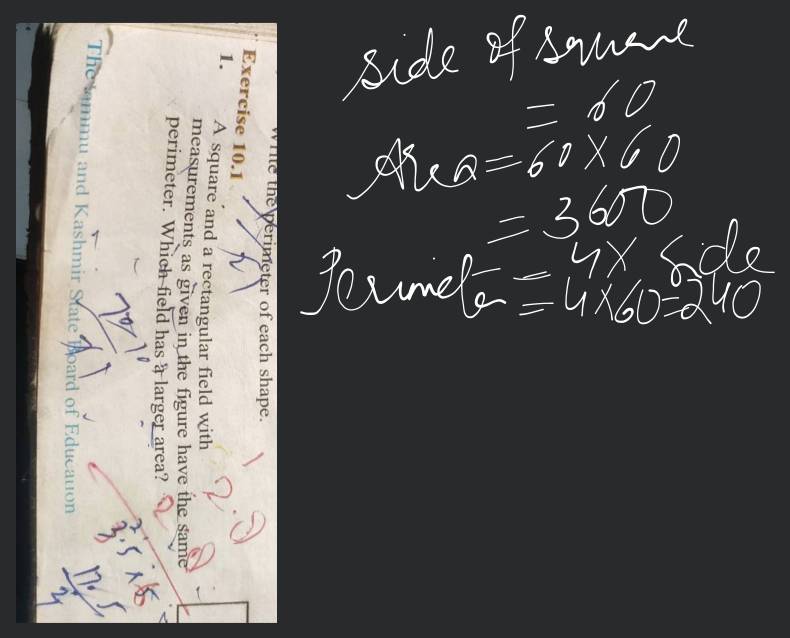 Write the perimeter of each shape.
Exercise 10.1
1. A square and a rectangular field with
measurements as given in the figure have the same
perimeter. Which field has a larger area?
The Jammu and Kashmir State Board of Education
side of square
= 60
Area = 60 X 60
= 3600
Perimeter = 4X side
= 4X60=240